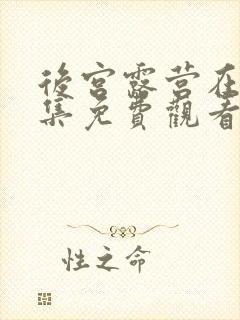 後宮露营在
集免費觀看
性之命